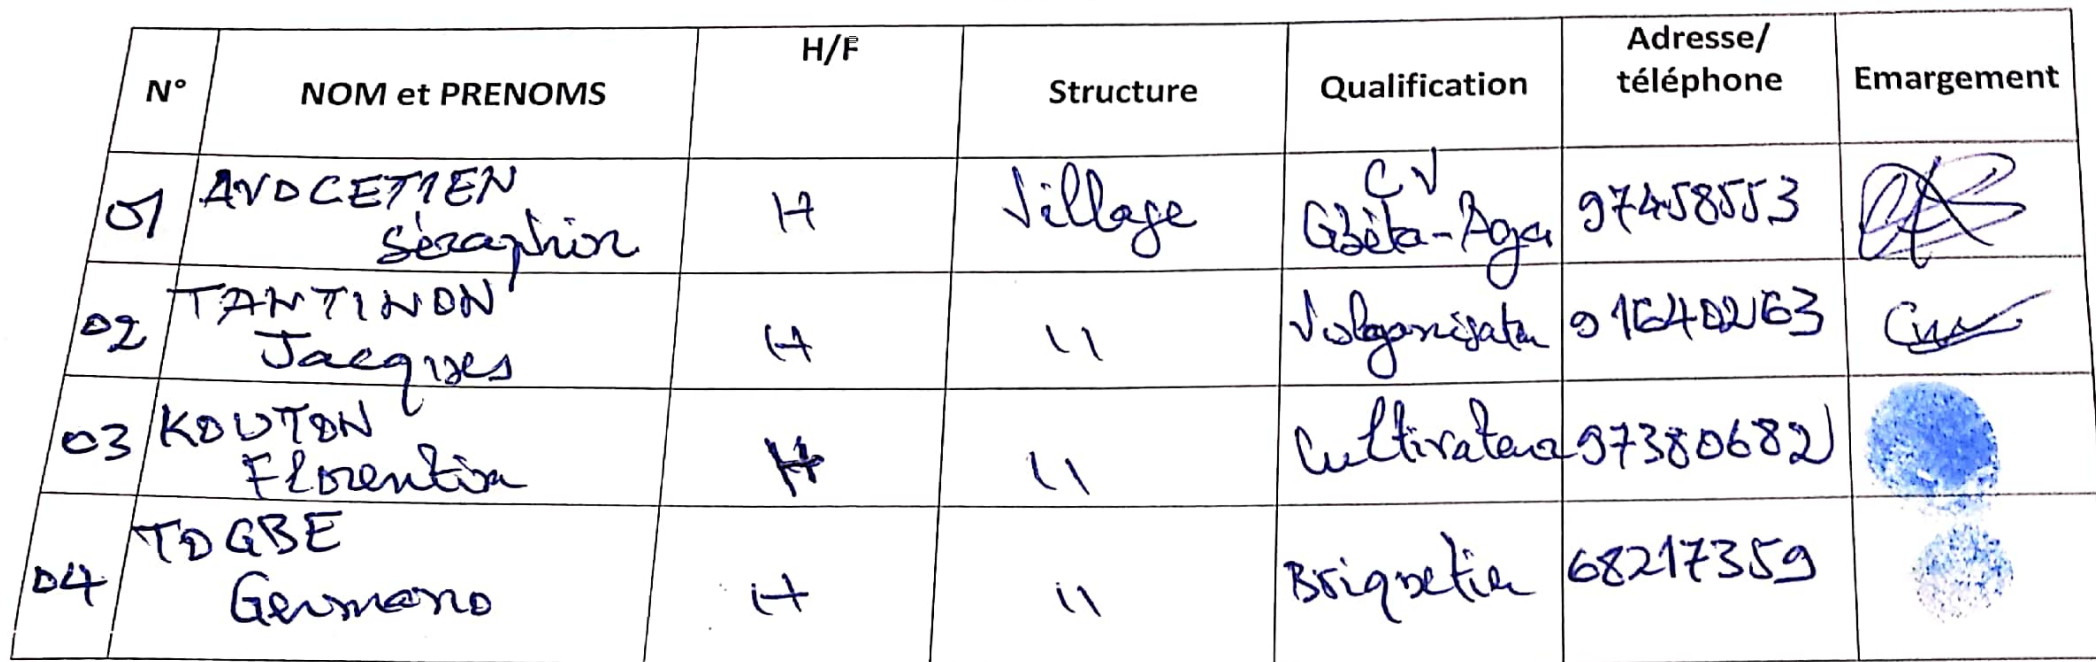 N° NOM et PRENOMS H/F Structure Qualification Adresse/
téléphone Emargement
01 AVOCETIEN
Séraphin H Village CV
Gbèta-Aga 97458553
02 TANTINON
Jacques H 11 Vulganisateu 91640263
03 KOUTON
Florentin H 11 Cultivateur 97380682
04 TOGBE
Germano H 11 Briquetier 68217359